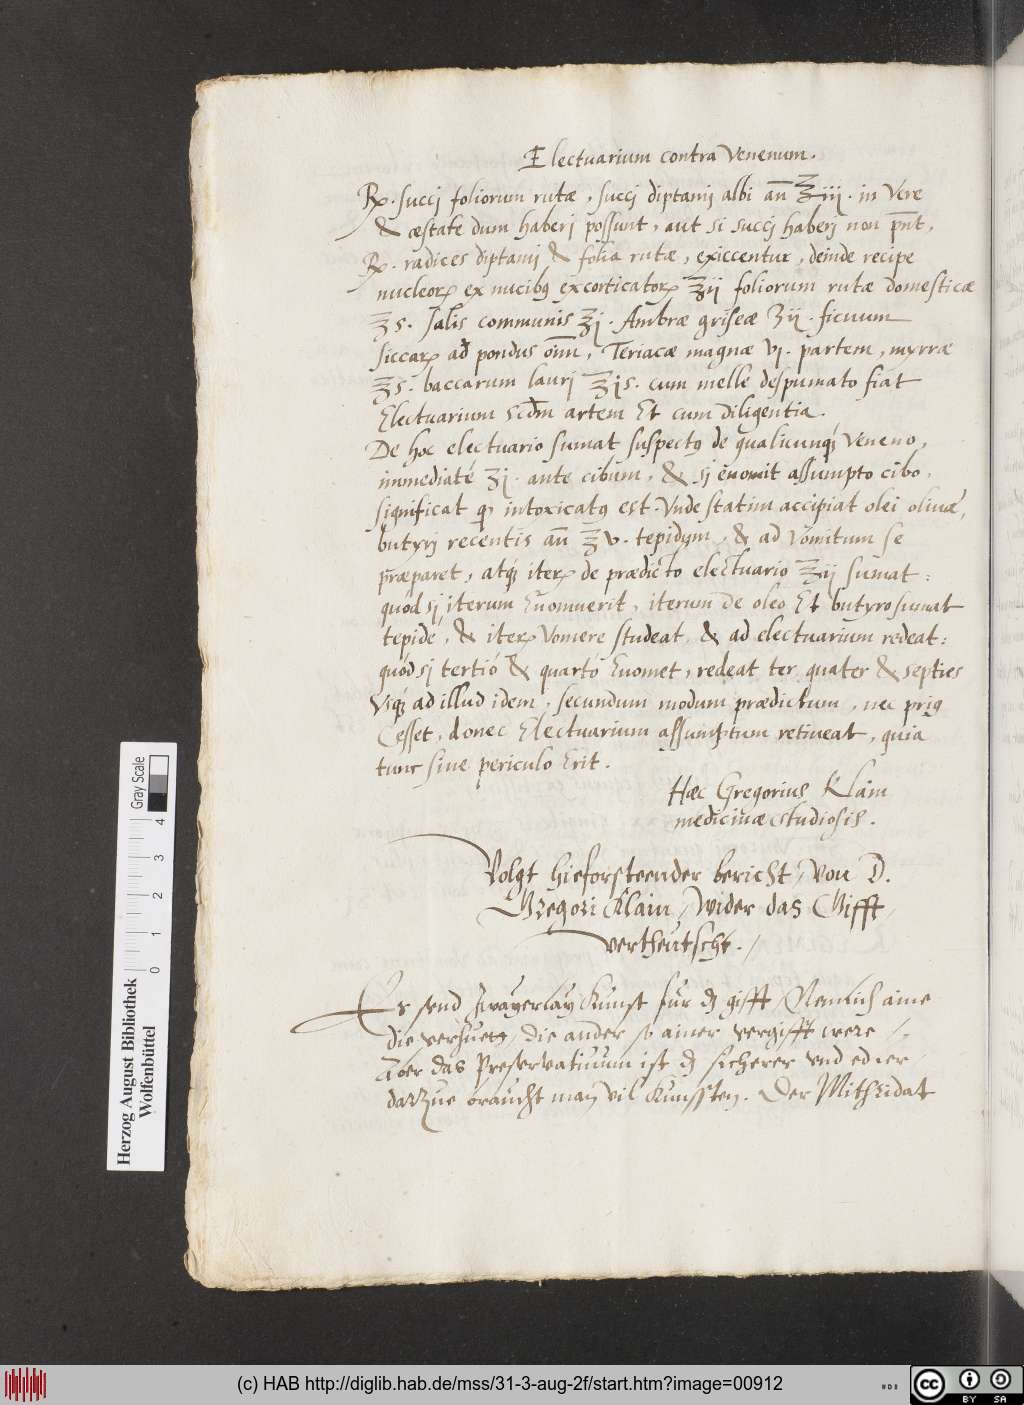 Electuarium contra Venenum.
℞. succj foliorum rutæ, succj diptamj albi an̄ ℥iij. in Vere
& æstate dum haberj possunt, aut si succj haberj non pn̄t,
℞. radices diptamj & folia rutæ, exiccentur, deinde recipe
nucleoꝝ ex nucibꝰ excorticatoꝝ ℥ij foliorum rutæ domesticæ
℥s. salis communis ℥j. Ambræ griseæ ʒij. ficuum
siccaꝝ ad pondus om̄, Teriacæ magnæ vj. partem, myrræ
℥s. baccarum laurj ℥js. cum melle despumato fiat
Electuarium scdm artem Et cum diligentia.
De hoc electuario sumat suspectꝰ de qualicunqꝫ Veneno,
immediatè ʒj. ante cibum, & sj euomit assumpto cibo,
significat ꝙ intoxicatꝰ est. Vnde statim accipiat olei oliuæ,
butyrj recentis an̄ ℥v. tepidum, & ad Vomitum se
præparet, atqꝫ iteꝝ de prædicto electuario ℥ij sumat:
quòd sj iterum Euomuerit, iterum de oleo Et butyro sumat
tepidè, & iteꝝ Vomere studeat, & ad electuarium redeat:
quòd sj tertiò & quartò Euomet, redeat ter quater & septies
Vsqꝫ ad illud idem, secundum modum prædictum, nec priꝰ
Cesset, donec Electuarium assumptum retineat, quia
tunc sine periculo Erit.
Hæc Gregorius Klain
medicinæ studiosis.
Volgt hieforsteender bericht, von D.
Gregori Klain, wider das Gifft,
vertheutscht./
Es send zwayerlay Kunst für dz gifft, Nemlich aine
die verhuetz, die ander so ainer vergifft were /.
Aber das Preservatiuum ist dz sicherer vnd edler,
darzue braucht man vil Kunsten. Der Mithridat
Gray Scale
0 1 2 3 4
Herzog August Bibliothek
Wolfenbüttel
(c) HAB http://diglib.hab.de/mss/31-3-aug-2f/start.htm?image=00912
cc BY SA